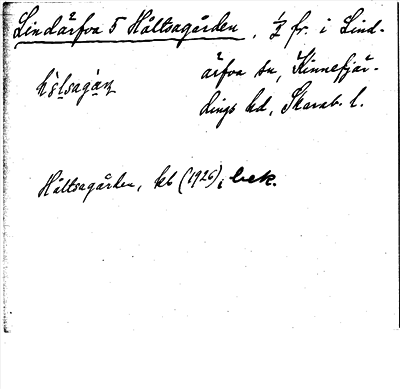 Lindärfva 5 Hältsagården, 1/2 fr. i Lind-
ärfva sn, Kinnefjär-
dings hd, Skarab. l.
Hältsagården, kb (1926), bek.